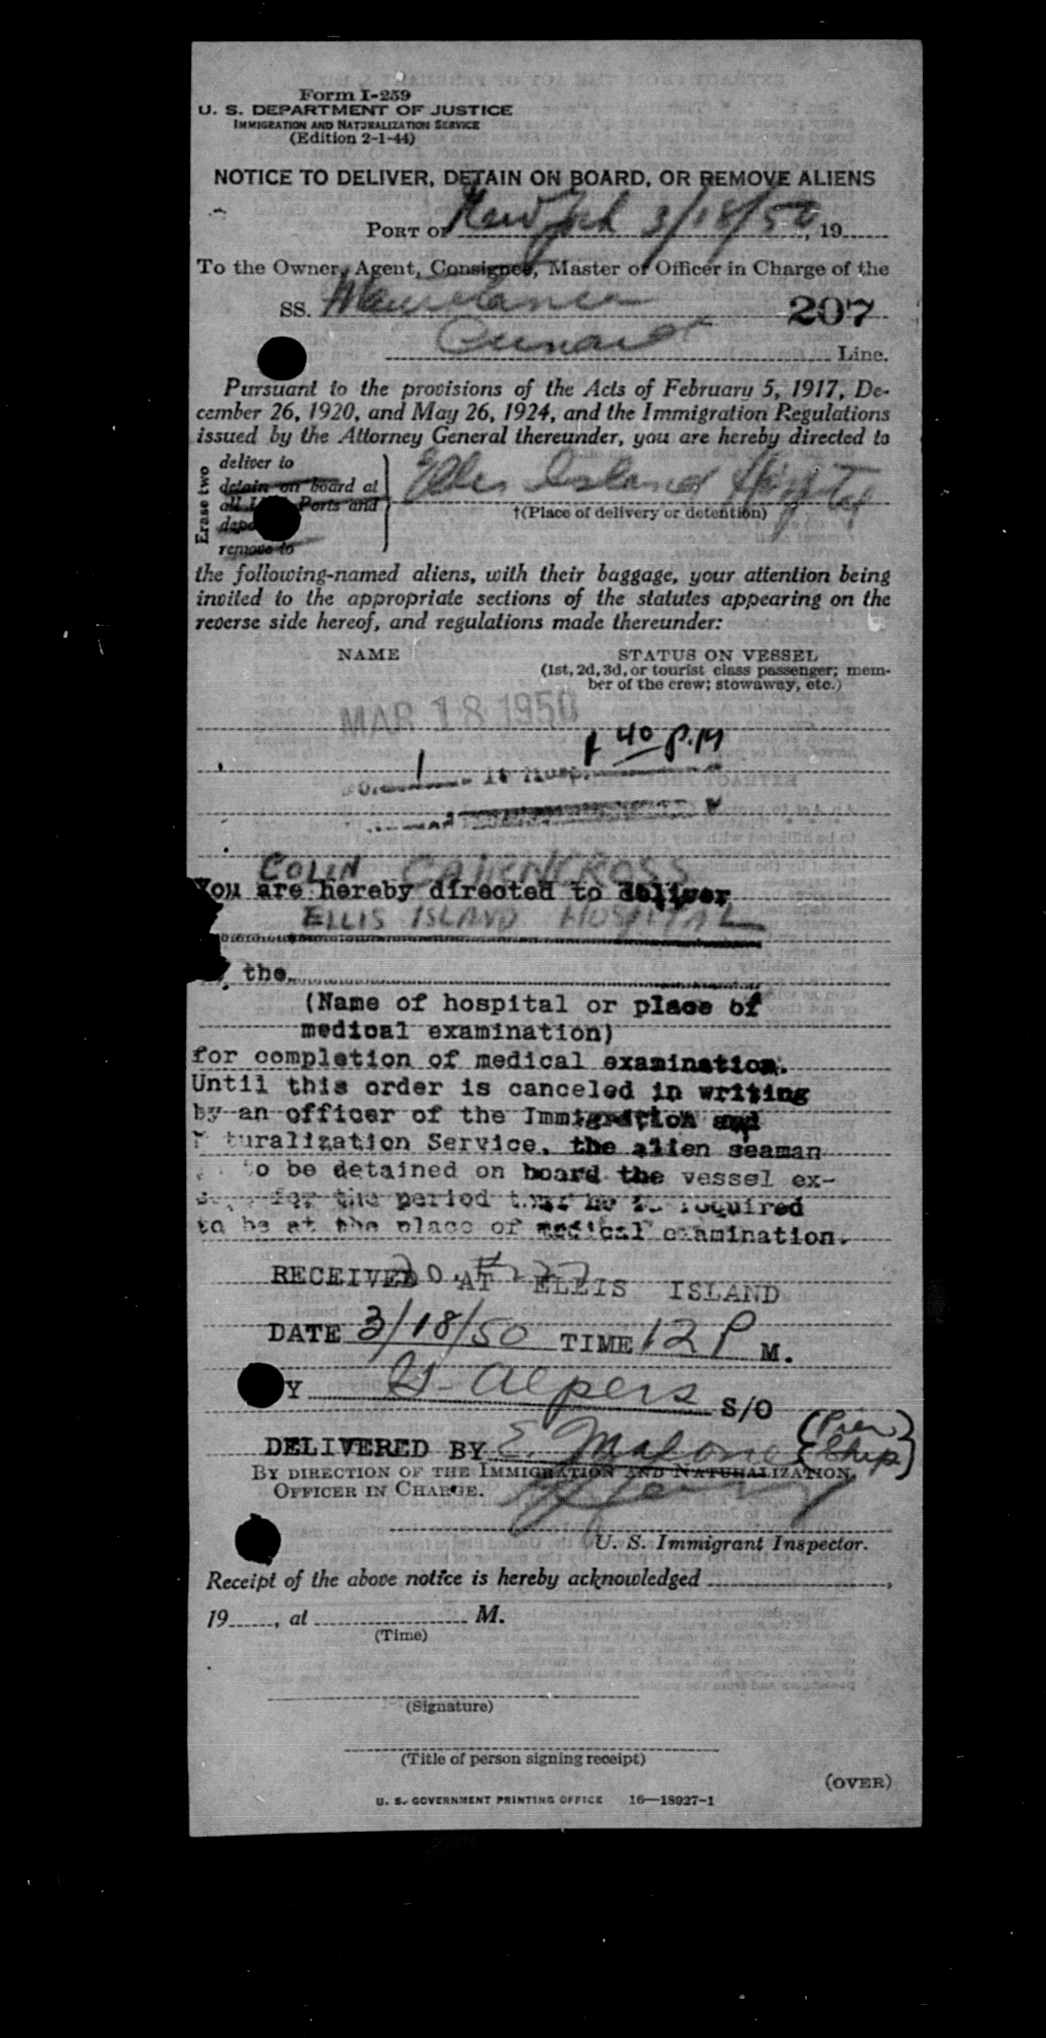 Form I-259
U. S. DEPARTMENT OF JUSTICE
IMMIGRATION AND NATURALIZATION SERVICE
(Edition 2-1-44)
NOTICE TO DELIVER, DETAIN ON BOARD, OR REMOVE ALIENS
PORT OF New York 3/18/50, 19
To the Owner, Agent, Consignee, Master or Officer in Charge of the
SS. Mauretania 207
Cunard Line.
Pursuant to the provisions of the Acts of February 5, 1917, De-
cember 26, 1920, and May 26, 1924, and the Immigration Regulations
issued by the Attorney General thereunder, you are hereby directed to
Erase two
deliver to
detain on board at
all Ports and
remove to
Ellis Island Hospital
†(Place of delivery or detention)
the following-named aliens, with their baggage, your attention being
invited to the appropriate sections of the statutes appearing on the
reverse side hereof, and regulations made thereunder:
NAME
STATUS ON VESSEL
(1st, 2d, 3d, or tourist class passenger; mem-
ber of the crew; stowaway, etc.)
MAR 18 1950
1 40 P.M
1 Hosp.
COLIN CAIRNCROSS
You are hereby directed to deliver
ELLIS ISLAND HOSPITAL
the
(Name of hospital or place of
medical examination)
for completion of medical examination.
Until this order is canceled in writing
by an officer of the Immigration and
turalization Service, the alien seaman
to be detained on board the vessel ex-
for the period that he is required
to be at the place of medical examination.
RECEIVED AT ELLIS ISLAND
DATE 3/18/50 TIME 12 P M.
Y G. Alpers S/O
DELIVERED BY E. Malone (Pier) (Ship)
BY DIRECTION OF THE IMMIGRATION AND NATURALIZATION
OFFICER IN CHARGE.
U. S. Immigrant Inspector.
Receipt of the above notice is hereby acknowledged ,
19 , at M.
(Time)
(Signature)
(Title of person signing receipt)
(OVER)
U. S. GOVERNMENT PRINTING OFFICE 16—18927-1